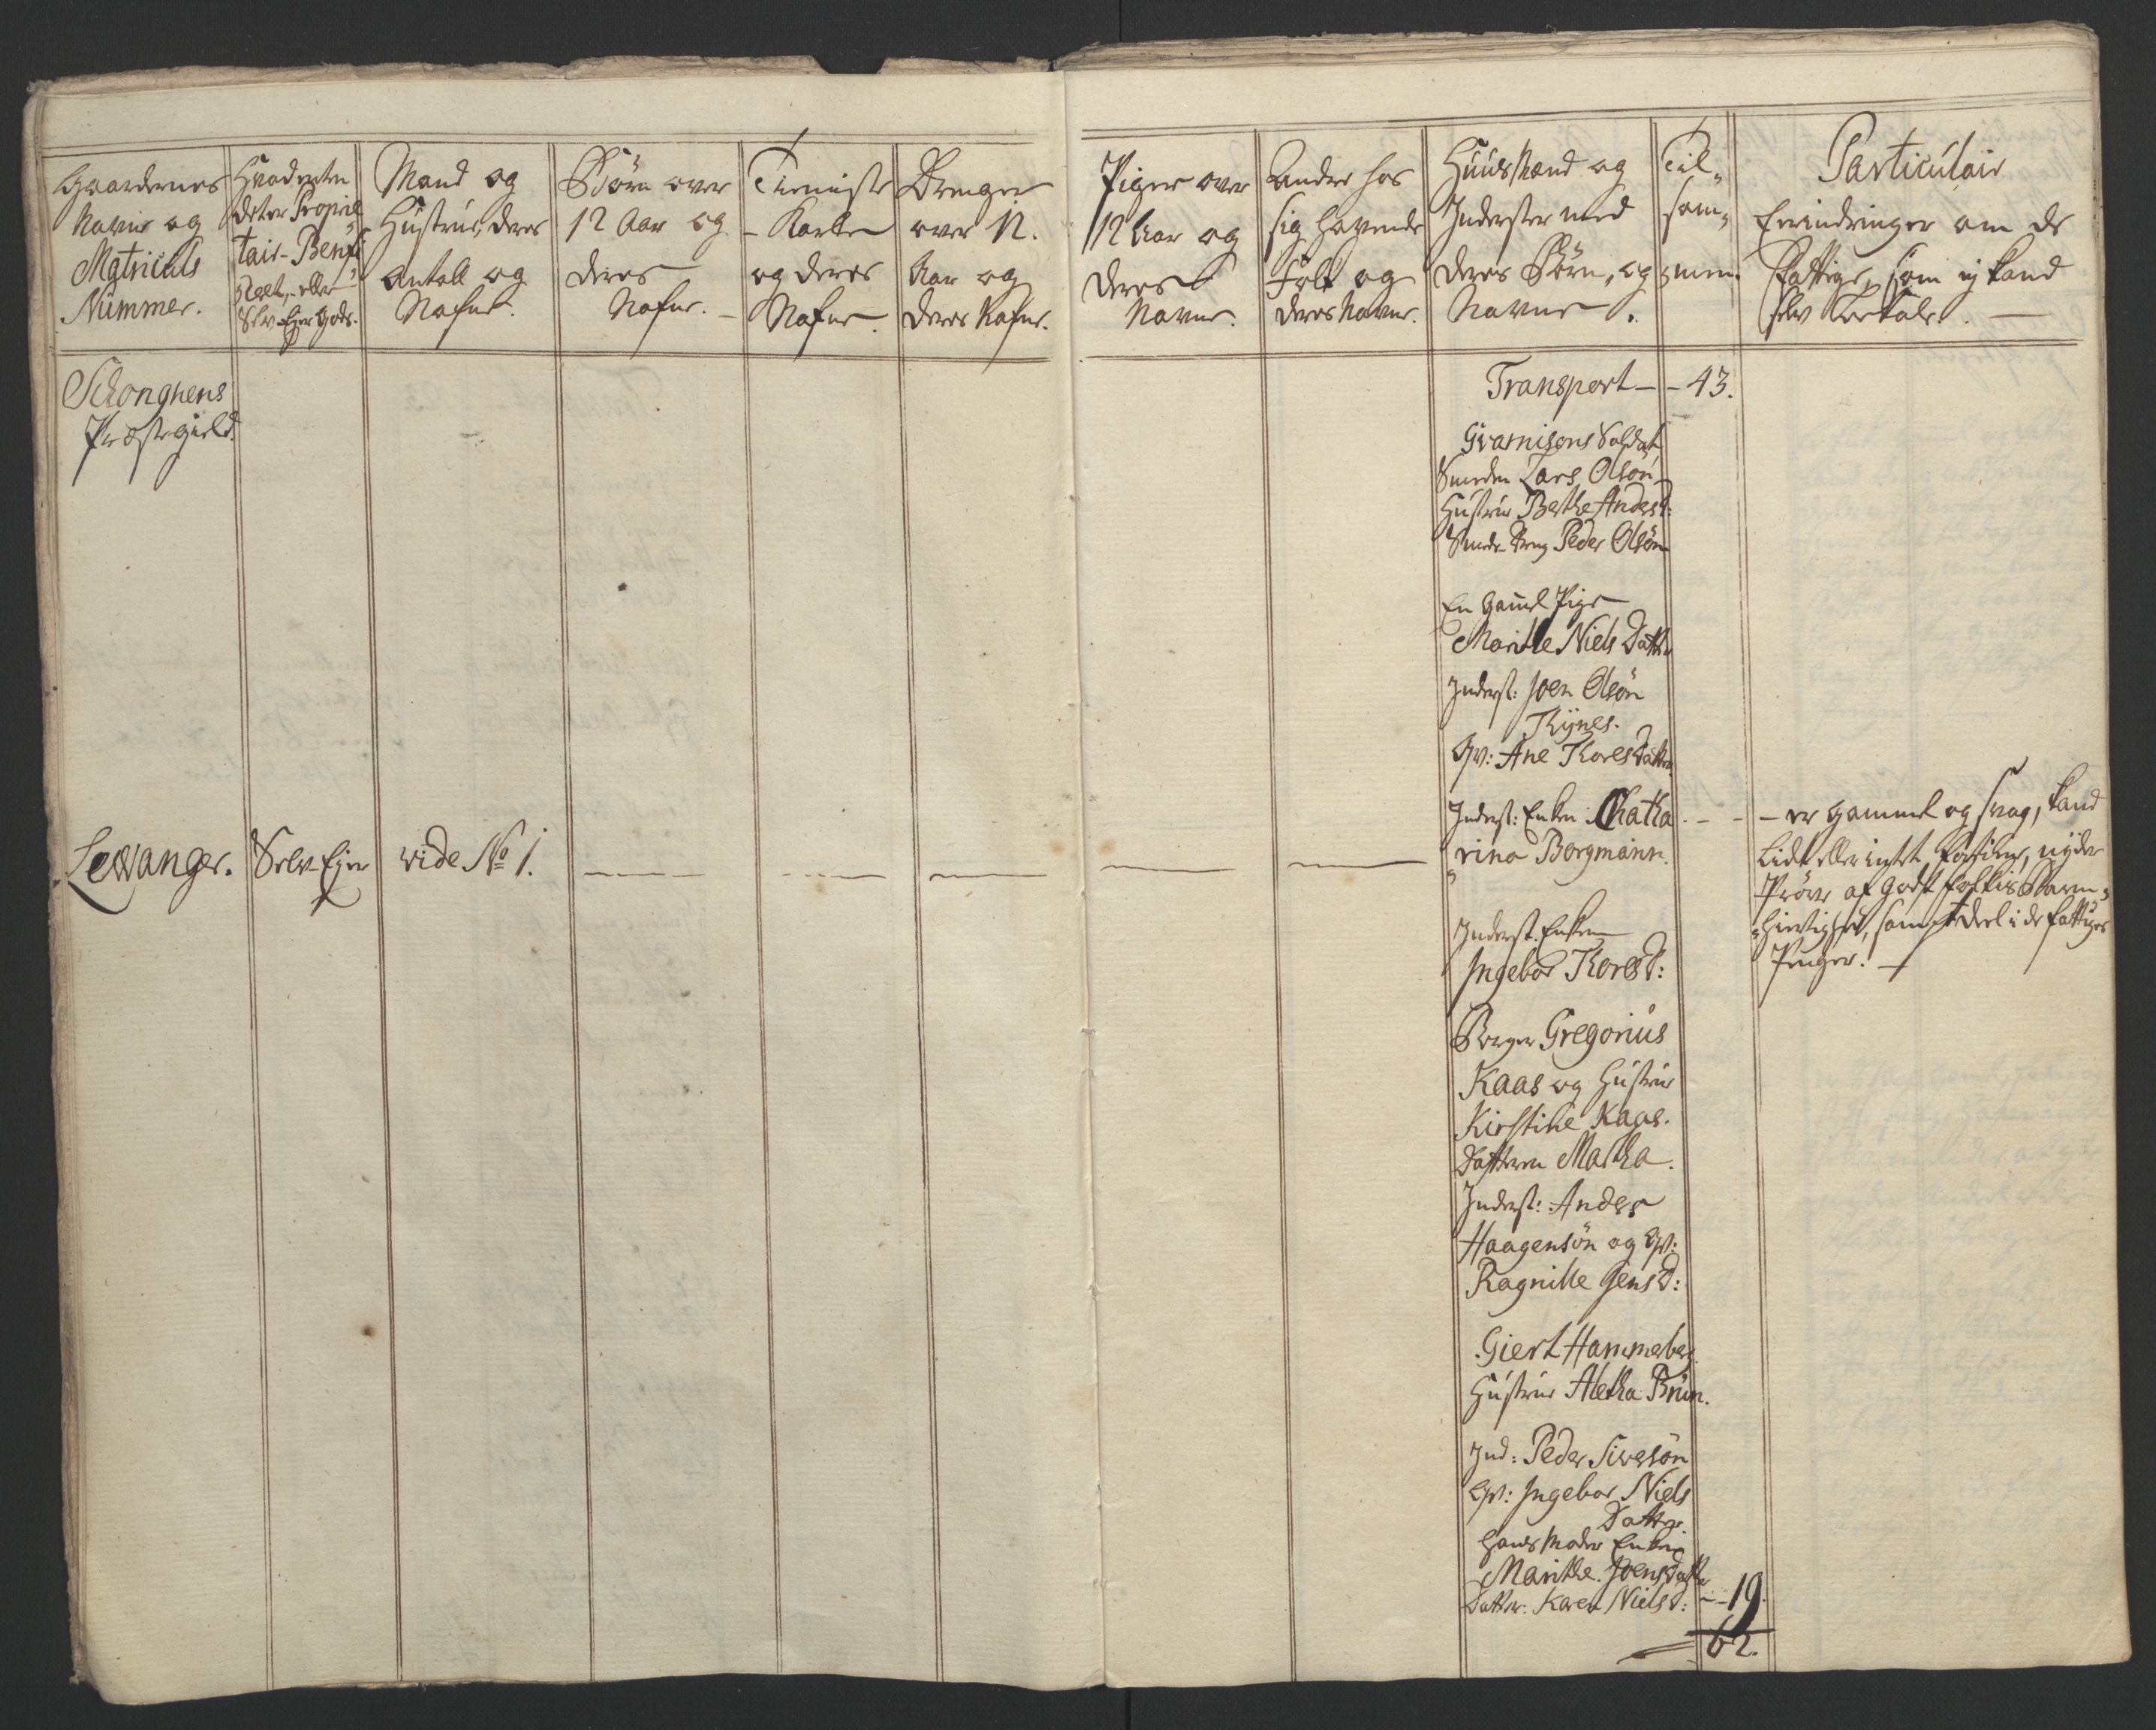 Gaardernes
Navne og
Matriculs
Nummer.
Hvad enten
det er Proprie
tair- Benefi
ceret,- eller
Selv-Ejer Gods.
Mand og
Hustrue, deres
Antall og
Nafne.
Børn over
12 Aar og
deres
Nafne. -
Tieniste
- Karle
og deres
Nafne.
Drenge
over 12.
Aar og
deres Nafne.
Piger over
12 Aar og
deres
Navne.
Andre hos
sig havende
Folk og
deres Navne.
Huus Mænd og
Inderster med
deres Børn, og
Navne.
Til„
sam„
men.
Particulair
Erindringer om de
Fattige, som ej kand
selv betale. —
Schongnens
Præstegield.
Transport — - 43.
Gvarnisons Soldat
Smeden Lars Olsön
Hustrue Berthe Andersd:
Smede Dreng Peder Olsön
En Gamel Pige
Marite Niels Datter
Inderst: Joen Olsön
Rÿnes.
Qv: Ane Thores Datter
Lewanger. Selv-Ejer vide No 1.
Inderst: Enken Catha
„rina Borgmann.
- er gammel og svag, kand
lidt eller intet fortiene, nyder
Prøve af Godt Folkis Barm„
„hiertighed, sampt deel i de fattiges
Penger. —
Inderst. Enken
Ingebor Thoresd:
Borger Gregorius
Kaas og Hustrue
Kirstine Kaas.
Datteren Martha.
Inderst: Anders
Haagensön og Qv:
Ragnille Jens D:
Giert Hammerber
Hustrue Aletha Brun.
Ind: Peder Siversön
Qv: Ingebor Niels
Datter.
Hans Moder Enken
Marithe Joensdatter
Datter: Karen Nielsd: - - 19.
62.